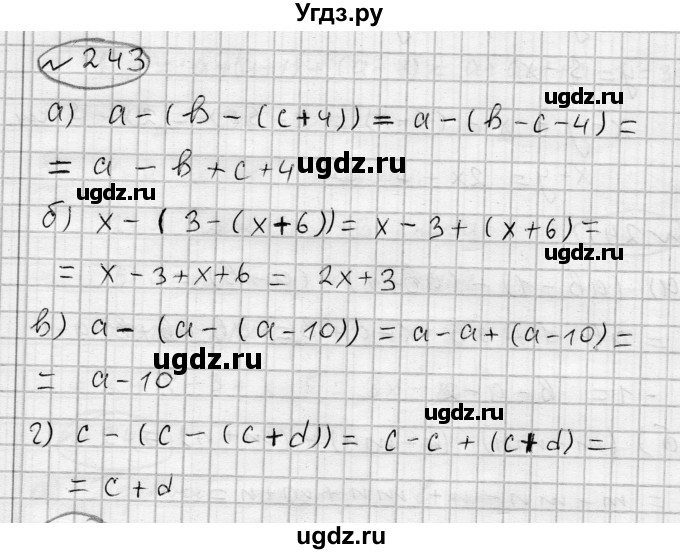 Угдз.ру
№ 243
ugdz.ru
а) a - (b - (c+4)) = a - (b - c - 4) =
ugdz.ru
= a - b + c + 4
ugdz.ru
ugdz.ru
б) x - (3 - (x+6)) = x - 3 + (x+6) =
ugdz.ru
= x - 3 + x + 6 = 2x + 3
в) a - (a - (a - 10)) = a - a + (a - 10) =
ugdz.ru
= a - 10
ugdz.ru
г) c - (c - (c + d)) = c - c + (c + d) =
= c + d
ugdz.ru